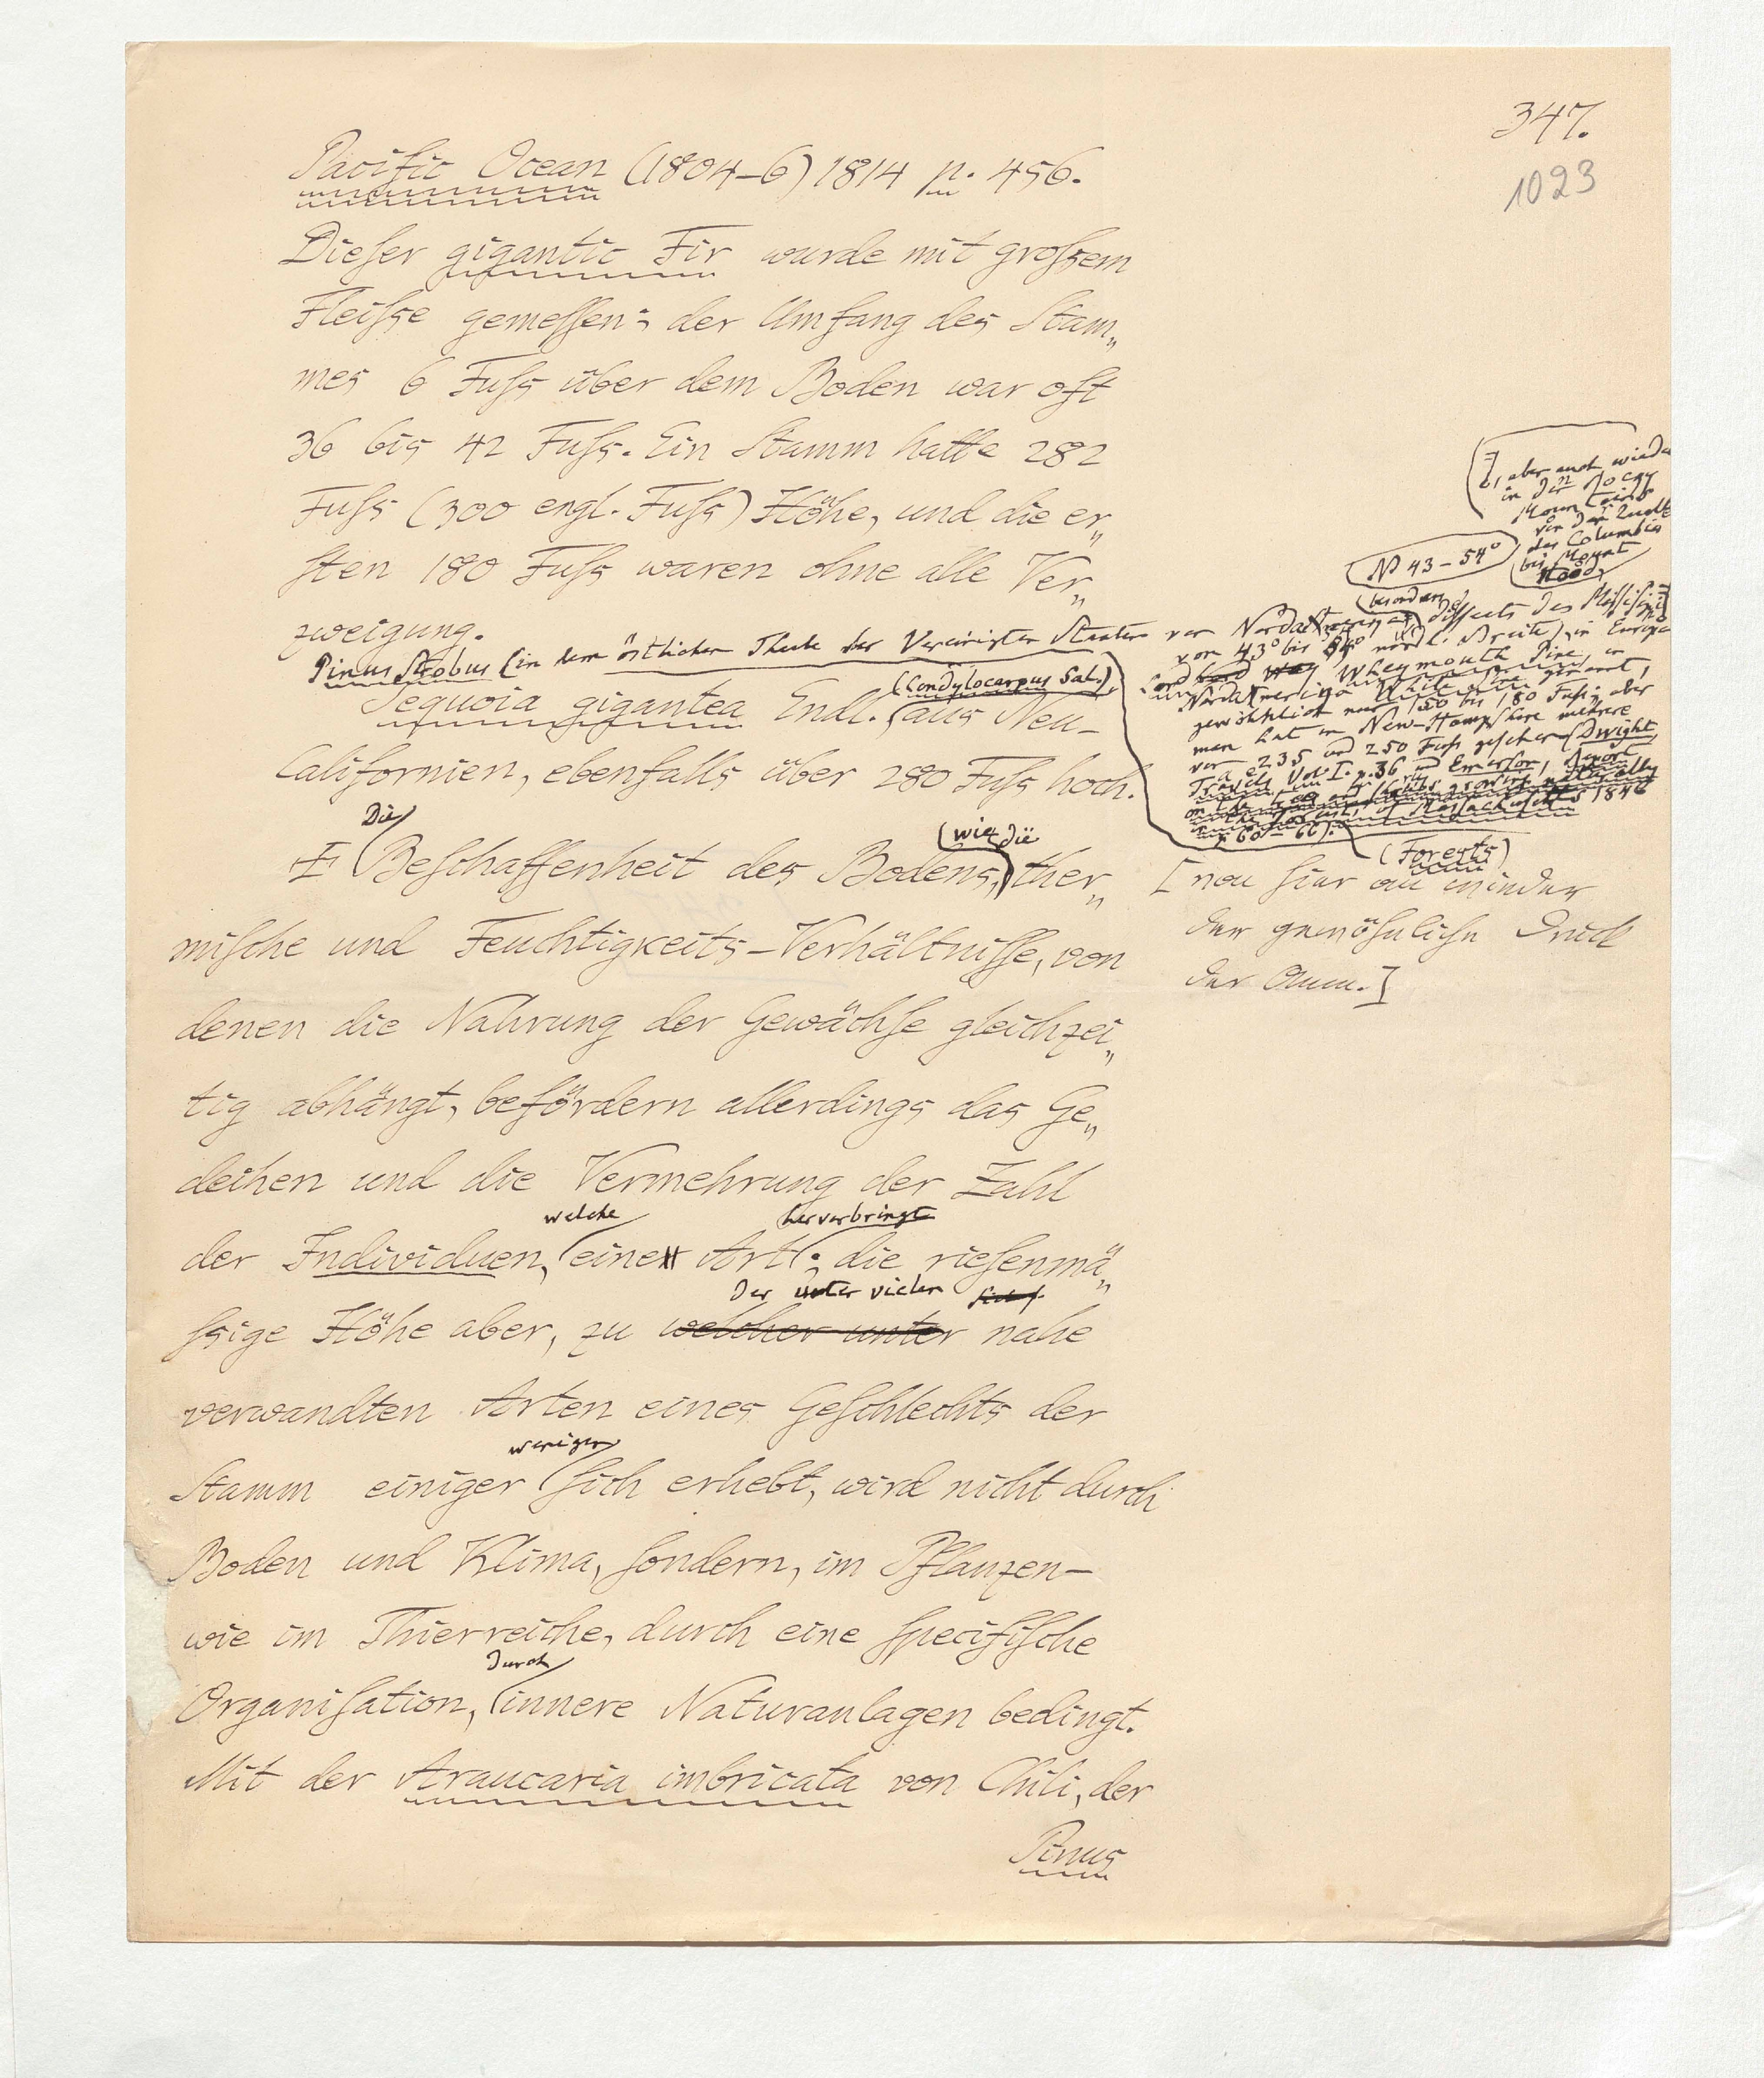 347.
1023
Pacific Ocean (1804–6) 1814 p. 456.
Dieser gigantic Fir wurde mit großem
Fleiße gemessen: der Umfang des Stam„
mes 6 Fuß über dem Boden war oft
36 bis 42 Fuß. Ein Stamm hatte 282
Fuß (300 engl. Fuß) Höhe, und die er„
sten 180 Fuß waren ohne alle Ver„
zweigung.
Pinus Strobus (in dem östlichen Theile der Vereinigten Staaten von Nordamerika, besonders diesseits des Mississipi
, aber auch wieder
in den Rocky
Mountains
von der Quelle
des Columbia
bis Mount
Hood,
N 43–54°
vom 43° bis 54° nördl. Breite), in Europa
Lord Weymouth Pine, in
Nordamerika White Pine genannt,
gewöhnlich nur 150 bis 180 Fuß; aber
man hat in New-Hampshire mehrere
von 235 und 250 Fuß gesehen (Dwight,
Travels Vol. I. p. 36 und Emerson, Report
on the trees and shrubs growing naturally
in the Forests of Massachusetts 1846
p. 60–66).
(Forests)
Sequoia gigantea Endl. (Condylocarpus Sal.) aus Neu-
Californien, ebenfalls über 280 Fuß hoch.
[von hier an wieder
der gewöhnliche Druck
der Anm.]
Die Beschaffenheit des Bodens, wie die ther„
mische und Feuchtigkeits-Verhältnisse, von
denen die Nahrung der Gewächse gleichzei„
tig abhängt, befördern allerdings das Ge„
deihen und die Vermehrung der Zahl
der Individuen, welche eine Art hervorbringt; die riesenmä„
ssige Höhe aber, zu welcher unter der unter vielen nahe
verwandten Arten eines Geschlechts der
Stamm einiger weniger sich erhebt, wird nicht durch
Boden und Klima, sondern, im Pflanzen-
wie im Thierreiche, durch eine specifische
Organisation, durch innere Naturanlagen bedingt.
Mit der Araucaria imbricata von Chili, der
Pinus